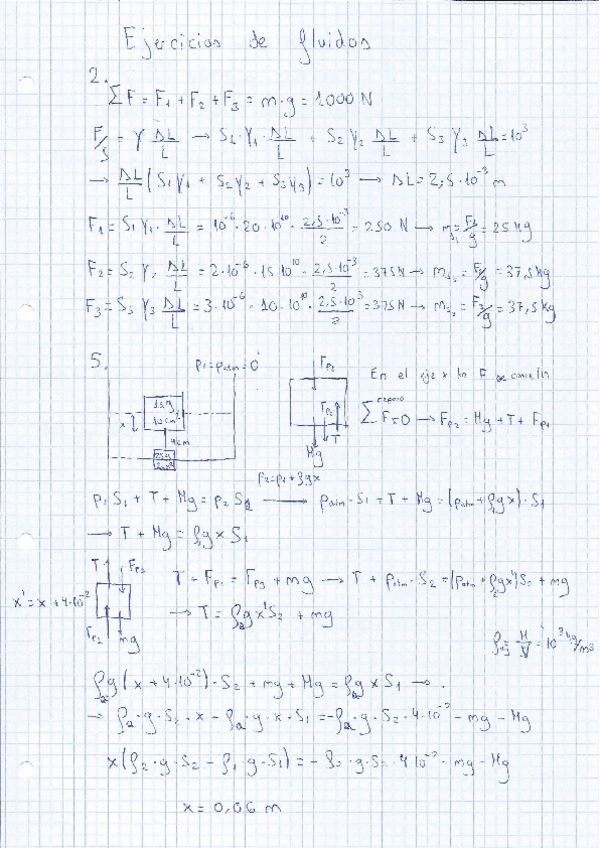 Ejercicios de fluidos
2.
∑F = F₁ + F₂ + F₃ = m·g = 1000 N
F/S = Y ΔL/L → S₁·Y₁·ΔL/L + S₂ Y₂ ΔL/L + S₃ Y₃ ΔL/L = 10³
→ ΔL/L (S₁Y₁ + S₂Y₂ + S₃Y₃) = 10³ → ΔL = 2,5·10⁻³ m
F₁ = S₁ Y₁·ΔL/L = 10⁻⁶·20·10¹⁰·2,5·10⁻³/2 = 250 N → = F₁/g = 25 kg
F₂ = S₂ Y₂ ΔL/L = 2·10⁻⁶·15·10¹⁰·2,5·10⁻³/2 = 375 N → = F/g = 37,5 kg
F₃ = S₃ Y₃ ΔL/L = 3·10⁻⁶·10·10¹⁰·2,5·10⁻³/2 = 375 N → = F₃/g = 37,5 kg
5.
p₁ = patm = 0
10cm²
x
4cm
Fp₂
T
Mg
En el eje x las F se cancelan
∑F = 0 → Fp₂ = Mg + T + Fp₁
p₂ = p₁ + ρgx
p₁S₁ + T + Mg = p₂S → patm·S₁ + T + Mg = (patm + ρgx)·S₁
→ T + Mg = ρgxS₁
T
Fp₃
x' = x + 4·10⁻²
Fp₂
mg
T + = Fp₃ + mg → T + patm·S₂ = (patm + ρgx')S₂ + mg
→ T = ρgx'S₂ + mg
= M/V = 10³ kg/m³
ρg(x + 4·10⁻²)·S₂ + mg + Mg = ρgxS₁ →
→ ρ·g·S₂·x - ρ·g·x·S₁ = -ρ·g·S₂·4·10⁻² - mg - Mg
x(ρ₂·g·S₂ - ρ₁·g·S₁) = - ρ₂·g·S₂·4·10⁻² - mg - Mg
x = 0,06 m